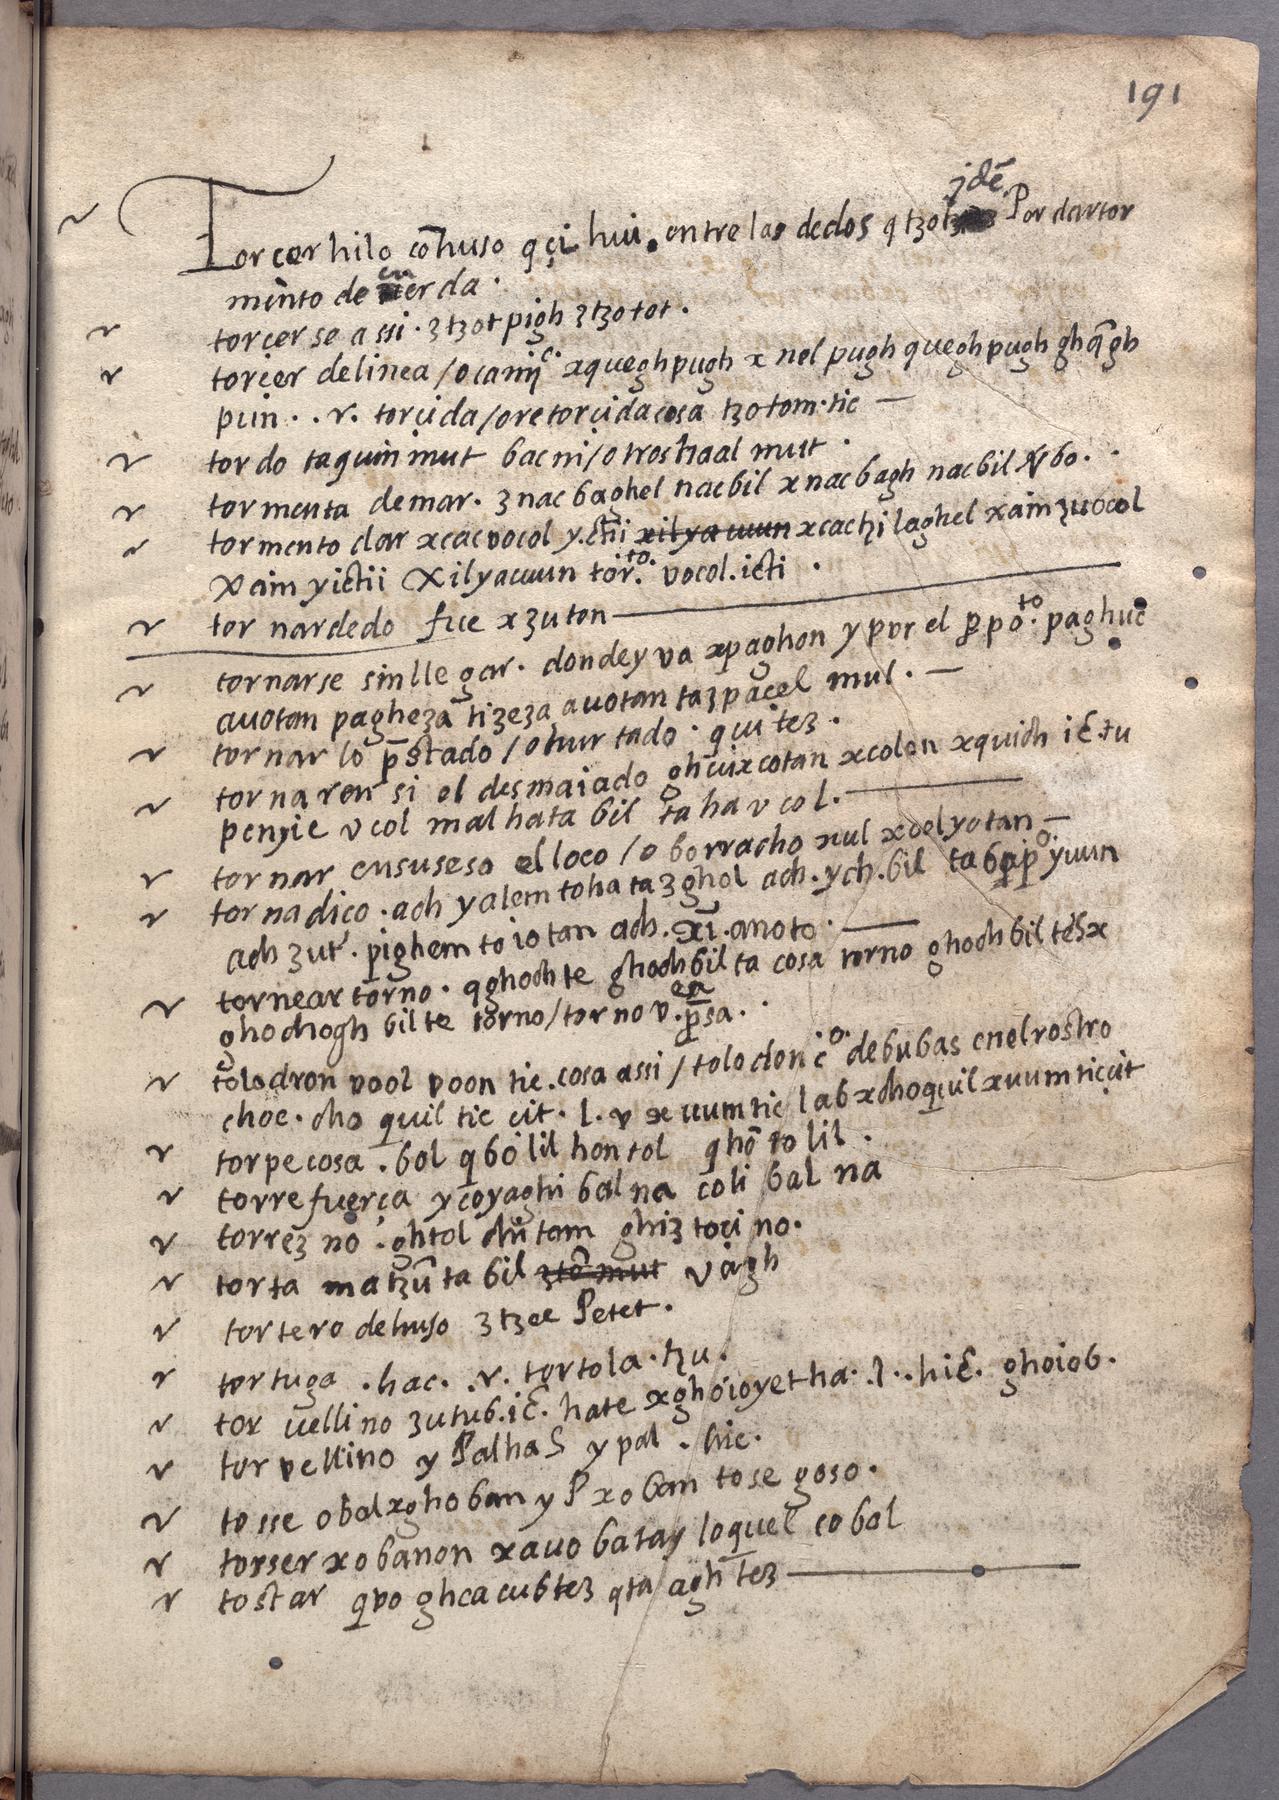 191
jdē
Torcer hilo cōhuso qçi hui. entre las dedos qtzotz Por dar tor
mento de cuerda.
torçer se assi. ztzotpigh ztzotot.
torçer de linea /o camīc. xqueghpugh x nel pugh queghpugh ghq̄gh
pun.. r. torçida /o retorçida cosa tzotom.tic —
tordo taquin mut bac ni /otros haal mut.
tormenta de mar. znacbaghel nacbil xnacbagh nacbil
tormento dar xcac vocol y.ctii xilyauuun xcachilaghel xaim zuocol
xaim yictii Xilyauuun tor.to vocol.icti.
tornar dedo fue xzuton —
tornarse sin llegar. donde y va xpaghon y por el ppo.to paghuc
auotan pagheza tizeza auotan tazpacel mul. —
tornar lo p̄stado /o hurtado. quitez.
tornar en si el desmaiado ghcuixcotan xcolon xquich ic.tu
penyie vcol malhata bil tahavcol. —
tornar ensuseso el loco /o borracho xul xoelyotan —
tornadico. ach yalem toha tazghol ach.ych.bil ta bap̄p̄o. yuun
ach zut. pighem to iotan ach. xī. anoto. —
tornear torno. qghochte ghochbil ta cosa torno ghochbil
ghochogh bilte torno/torno v.ea p̄sa.
tolodron vool voon tic. cosa assi /tolodon c̄o. de bubas en el rostro
choc. cho quil tic cit. l. v x uumtic lab xchoquil xuumticçit
torpe cosa. bol qbolil hontol qhōtolil.
torre fuerça ycoyaghibal na colibal na
torrezno. ghtol chitam ghiz toçino.
torta matzūtabil ztō mut vàgh
tortero dehuso ztzee Petet.
tortuga. hac. .r. tortola. tzu.
tor uellino zutub.ic̄. hate xghoioyetha. l. hic̄. ghoiob.
torvellino y Palhas y pal. hic.
tosse obal xghoban y P xoban tose goso.
torser xobanon xauobatay loquel cobal
tostar qvo ghcacubtez qta aghtez —